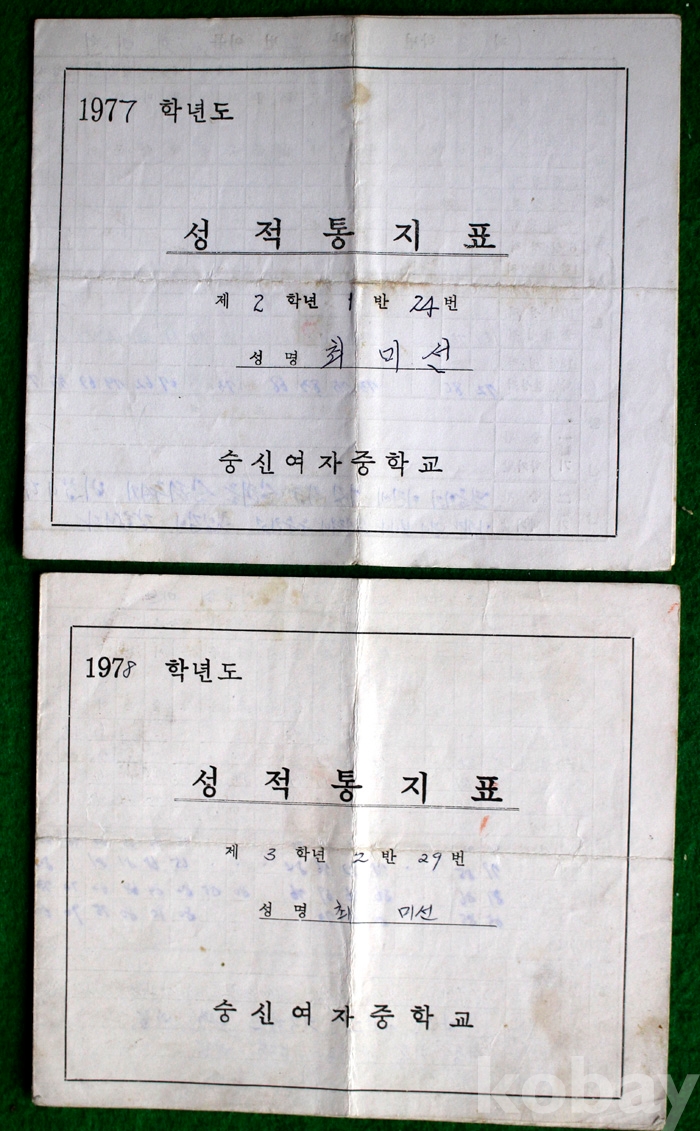 1977 학년도
성적통지표
제 2 학년 1 반 24번
성명 최미선
숭신여자중학교
1978 학년도
성적통지표
제 3 학년 2 반 29번
성명 최 미선
숭신여자중학교
kobay